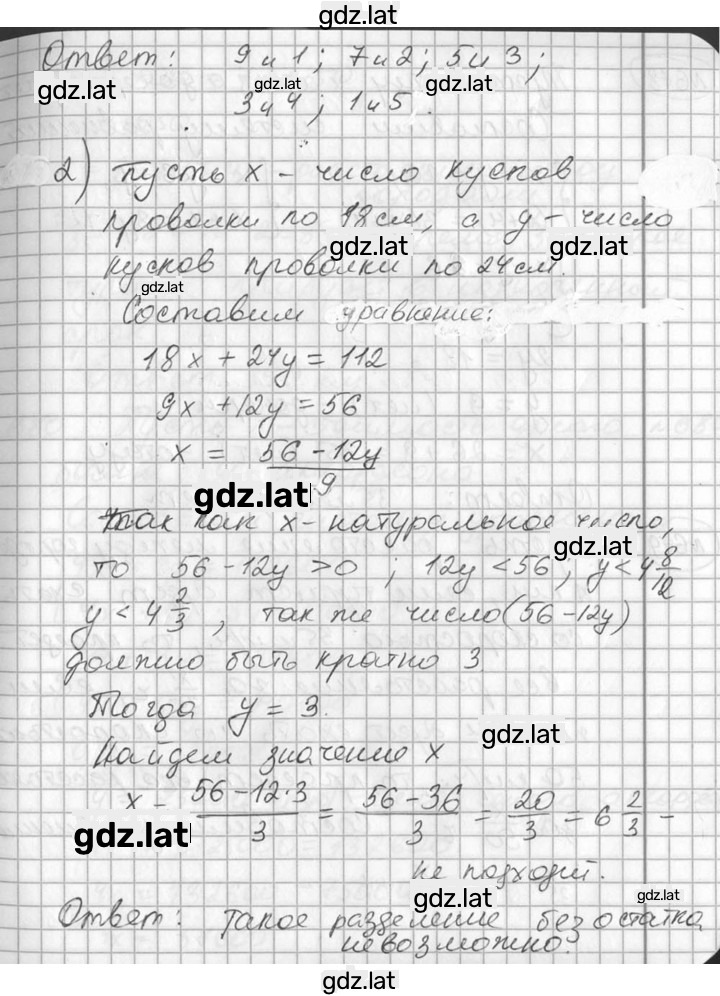 gdz.lat
Ответ: 9 и 1; 7 и 2; 5 и 3;
gdz.lat gdz.lat gdz.lat
3 и 4; 1 и 5.
2) Пусть x - число кусков
проволки по 18 см, а y - число
gdz.lat gdz.lat
кусков проволки по 24 см.
gdz.lat
Составим уравнение:
18x + 24y = 112
9x + 12y = 56
x = (56 - 12y)/9
gdz.lat
Так как x - натуральное число,
gdz.lat
то 56 - 12y > 0; 12y < 56; y < 4 8/12
y < 4 2/3, так же число (56 - 12y)
должно быть кратно 3
Тогда y = 3.
gdz.lat
Найдем значение x
x - (56 - 12·3)/3 = (56 - 36)/3 = 20/3 = 6 2/3 -
gdz.lat
не подходит.
gdz.lat gdz.lat
Ответ: такое разделение без остатка
невозможно.
gdz.lat